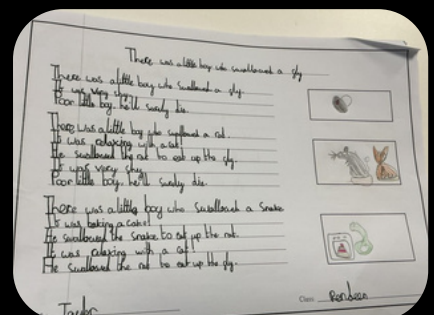 There was a little boy who swallowed a fly
There was a little boy who swallowed a fly.
It was very shy
Poor little boy, he'll surely die.
There was a little boy who swallowed a rat.
It was relaxing with a cat.
He swallowed the rat to eat up the fly.
It was very shy
Poor little boy, he'll surely die.
There was a little boy who swallowed a snake
It was baking a cake!
He swallowed the snake to eat up the rat.
It was relaxing with a cat
He swallowed the rat to eat up the fly.
Class